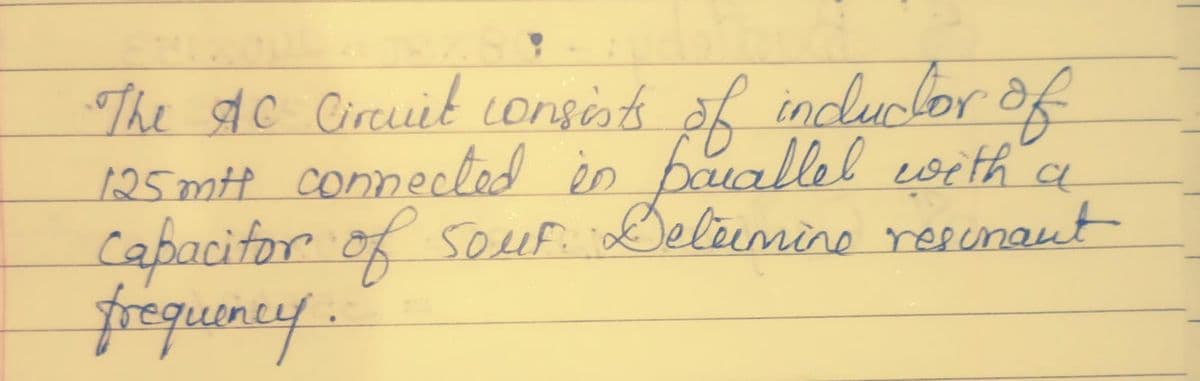 The AC Circuit consists of inductor of
125 mH connected in parallel with a
capacitor of 50μF. Determine resonant
frequency.